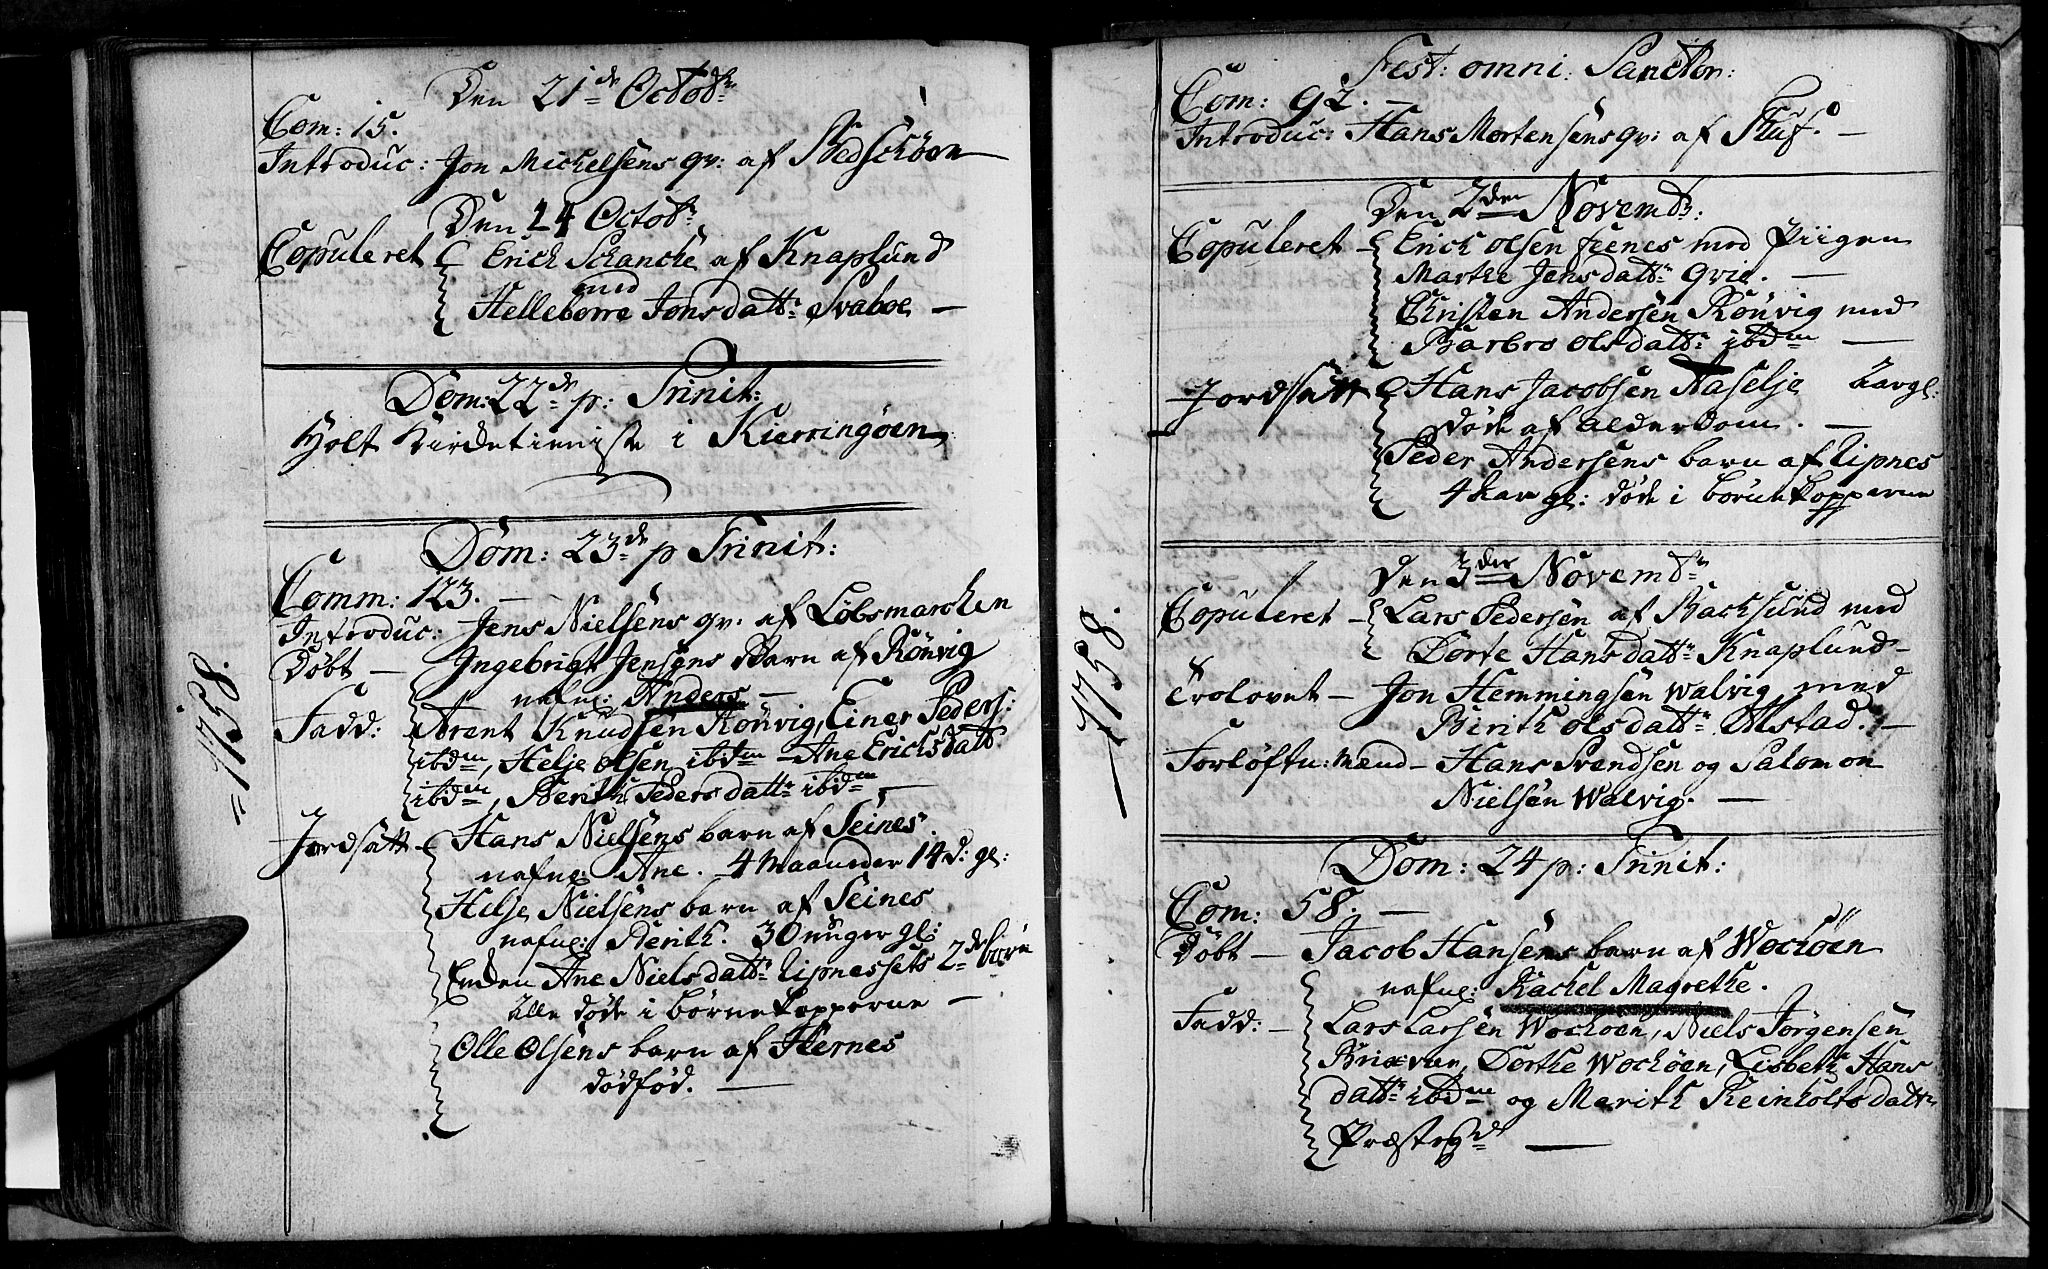 Den 21de Octobr:
Com: 15.
Introduc: Jon Michelsens qv: af
Den 24 Octobr:
Copuleret Erich Schancke af Knaplund
med
Helleborre Jonsdattr: Svaboe —
Dom: 22de p: Trinit:
Holt Kirdetieniste i Kierringøen
Dom: 23de p Trinit:
Comm: 123. —
Introduc: Jens Nielsens qv: af Løbsmarchen
Døbt — Ingebrigt Jensens Barn af Rönvig
nafnl: Anders —
Fadd: Arent Knudsen Rönvig, Einer Peders:
ibdm, Helje Olsen ibdm — Ane Ericksdatt
ibdm, Berith Pedersdattr ibdm —
Jordsatt — Hans Nielsens barn af Seines.
nafnl: Ane. 4 Maaneder 14 d: gl:
Helje Nielsens barn af Seines
nafnl: Berith. 30 uger gl:
Enden Ane Nielsdattr Lipnessets 2de börn
alle døde i børnekopperne —
Olle Olsens barn af Hernes
dödfød. —
1758.
Fest: omni: Sanctor:
Com: 92. —
Introduc: Hans Mortensens qv: af —
Den 2den Novembr:
Copuleret — Erich Olsen Feenes med Piigen
Marthe Jensdattr Qvie. —
Christen Andersen Rönvig med
Barbro Olsdattr ibdm —
Jordsatt Hans Jacobsen Naselje gl:
døde af Alderdom. —
Peder Andersens barn af Lipnes
4 aar gl: døde i börnekopperne
Den 3der Novembr
Copuleret — Lars Pedersen af Backsund med
Dorte Hansdattr Knaplund —
Trolovet — Jon Hemmingsen Walvig med
Birith Olsdattr Alstad. —
Forløftn: Mænd — Hans Svendsen og Salomon
Nielsen Walvig. —
1758.
Dom: 24 p: Trinit:
Com: 58. —
Døbt — Jacob Hansens barn af Wochöen
nafnl: Rachel Magrethe.
Fadd: — Lars Larsen Wochöen, Niels Jørgensen
Dorthe Wochöen, Lisbeth Hans
dattr ibdm og Marith Reinholtsdattr
Præstegd —